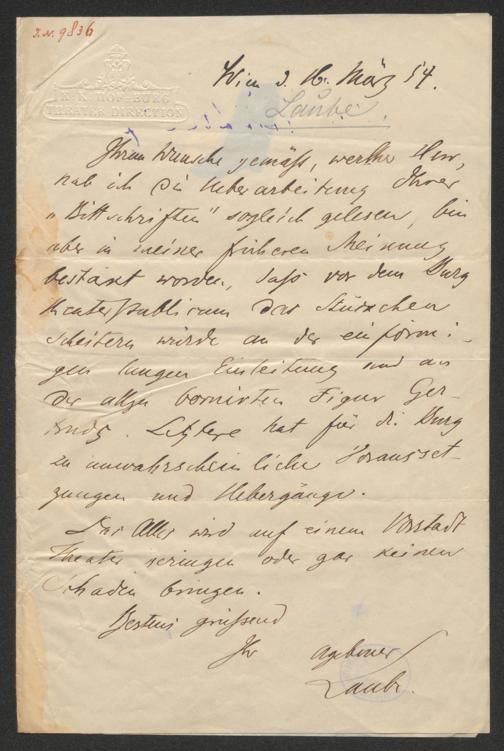 J.N. 9836
K. K. HOF-BURG-
THEATER DIRECTION
Wien d. 16. März 54.
Laube
Ihrem Wunsche gemäß, werther Herr,
hab ich die Ueberarbeitung Ihrer
„Bittschriften" sogleich gelesen, bin
aber in meiner früheren Meinung
bestärkt worden, daß vor dem Burg
theaterpublicum das Stückchen
scheitern würde an der einförmi-
gen langen Einleitung und an
der allzu bornirten Figur Ger-
. Letztere hat für die Burg
zu unwahrscheinliche Vorausset-
zungen und Uebergänge.
Das Alles wird auf einem Vorstadt
theater geringen oder gar keinen
Schaden bringen.
Bestens grüßend
Ihr ergebener
Laube.